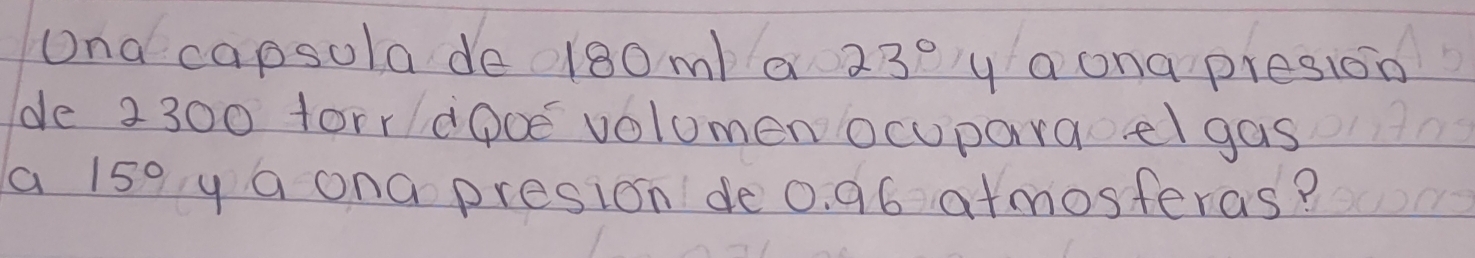 Una capsula de 180 ml a 23° y a una presión
de 2300 torr ¿Qué volumen ocupara el gas
a 15° y a una presión de 0.96 atmosferas?